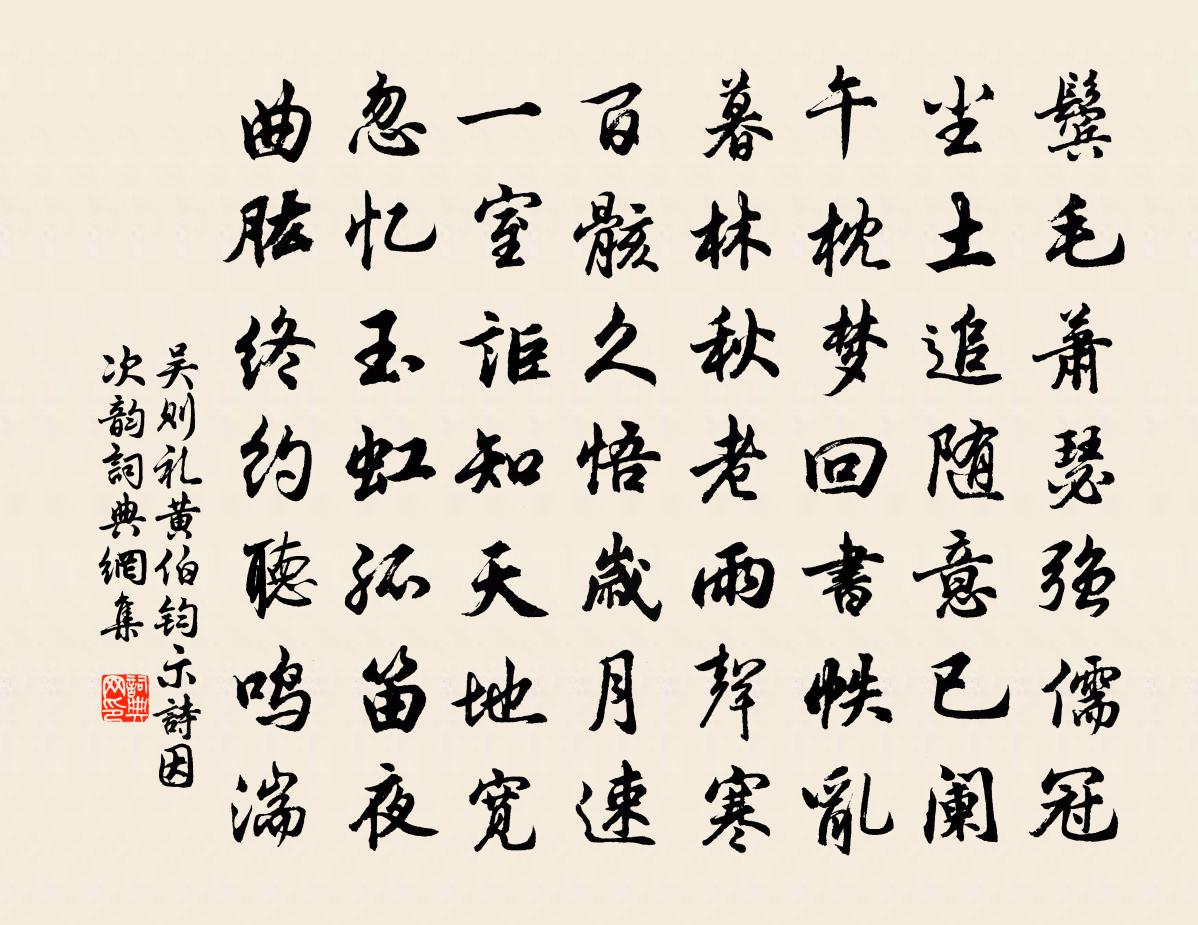 鬓毛萧瑟强儒冠
尘土追随意已阑
午枕梦回書帙亂
暮林秋老雨聲寒
百骸久悟歲月速
一室詎知天地宽
忽忆玉虹孤笛夜
曲肱终约聽鸣湍
吴则礼黄伯钧示詩因
次韵詞典網集
詞典
网印